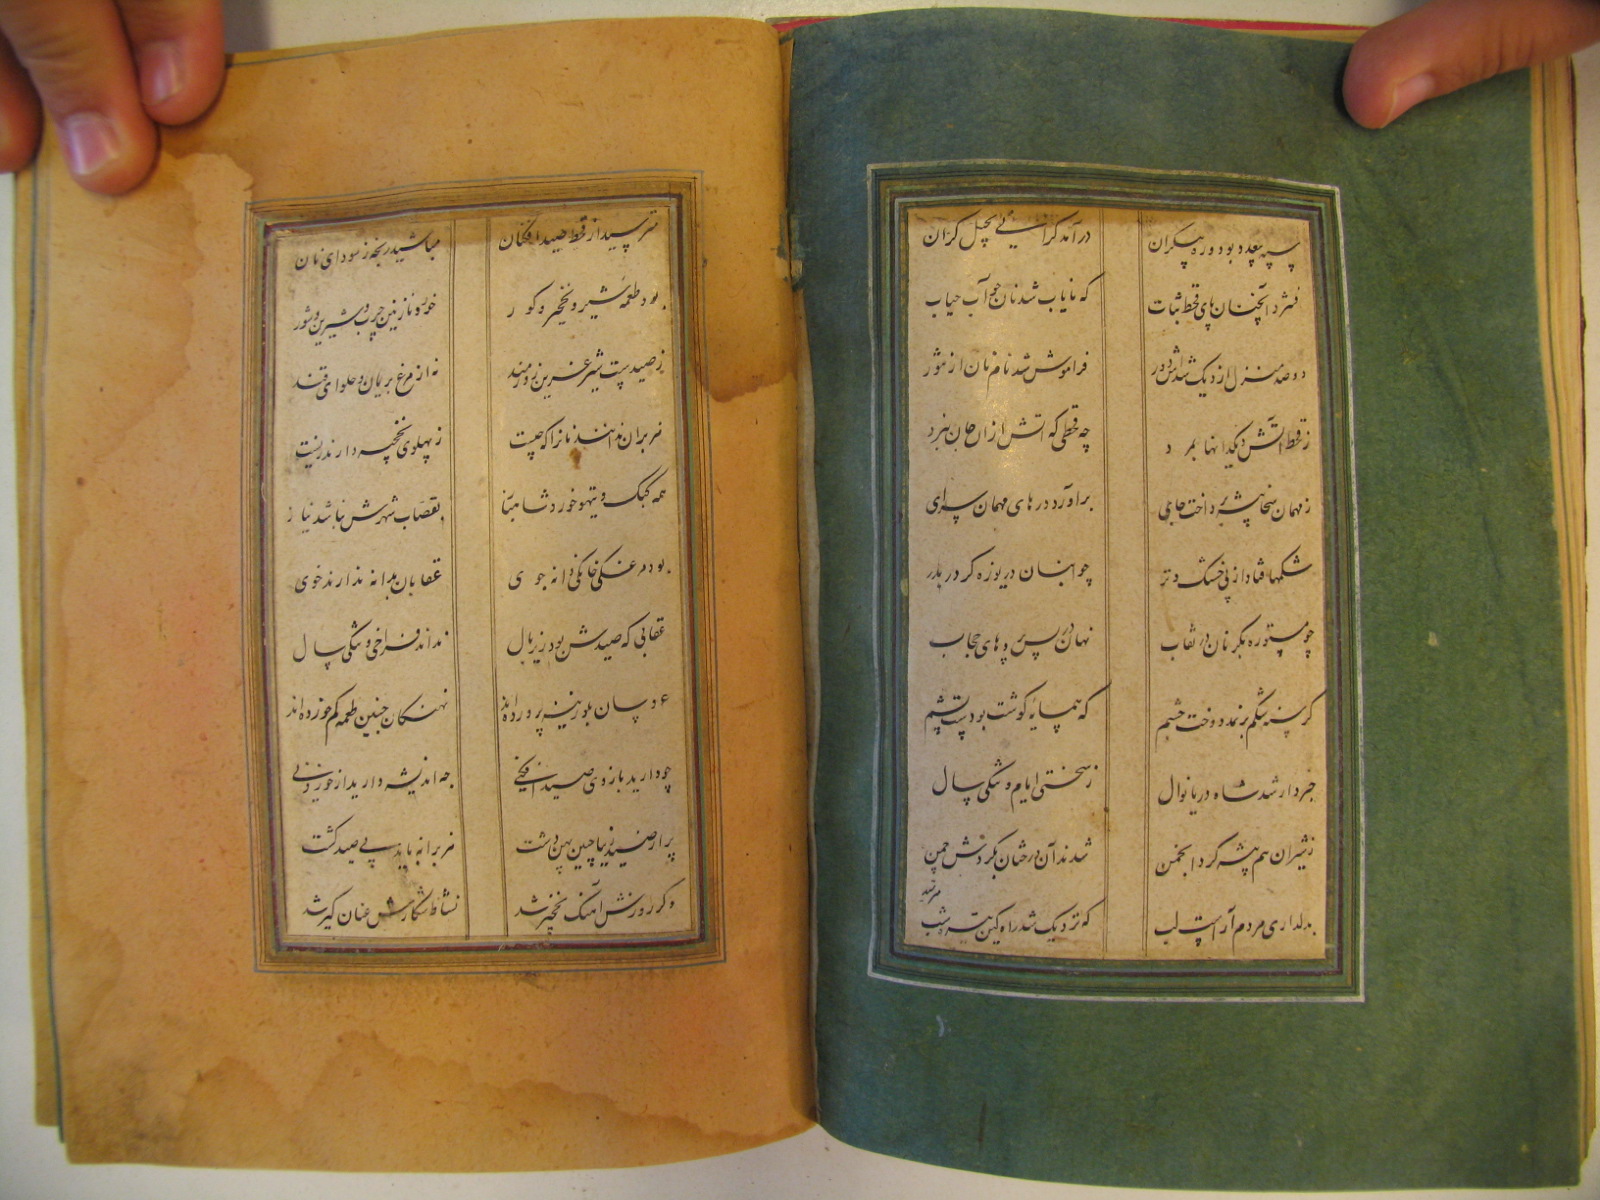 سپه بیعدد بود و ره بیکران
درآمد گرانی بخیل گران
فشرد آنچنان پای قحط ثبات
که نایاب شد نان چو آب حیات
دو صد منزل از دیک شد آتش دور
فراموش شد نام نان از
ز قحط آتش دیگدانها بمرد
چه قحطی که آتش ازان جان نبرد
ز مهمان سخا پیشه پرداخت جای
برآورد درهای مهمان سرای
شکمها فتاد از پی خشک و تر
چو انبان دریوزه گر در بدر
چو مستوره بکر نان در نقاب
نهان در پس پرده های حجاب
گرسنه شکم بر نمد دوخت چشم
که همسایه گوشت بودست پشم
خبردار شد شاه دریا نوال
ز سختی ایام و تنگی سال
ز شیران هم پیشه کرد انجمن
شدند آن درختان بگردش چمن
بدلداری مردم آراست لب
که نزدیک شد راه کین تیره شب
مترسید از قحط صید افکنان
مباشید رنجه ز سودای نان
بود طعمه شیر نخجیر و گور
خورد نازنین چرب و شیرین و شور
ز صیدست شیر عرین زورمند
نه از مرغ بریان و حلوای قند
هزبران ندانند نان را که چیست
ز پهلوی نخجیر دارند زیست
همه کبک و تیهو خورد شاهباز
بقصاب شهرش نباشد نیاز
بود مرغکی خانگی دانه جوی
عقابان بدانه ندارند خوی
عقابی که صیدش بود زیر بال
نداند فراخی و تنگی سال
عروسان بلوزینه پرورده اند
نهنگان چنین طعمه کم خورده اند
چو دارید بازوی صید افکنی
چه اندیشه دارید از خوردنی
پر از صید زیبا چنین پهن دشت
هزبرانه باید پی صید گشت
وگر روزش آهنگ نخجیر شد
نشاط شکارش عنان گیر شد